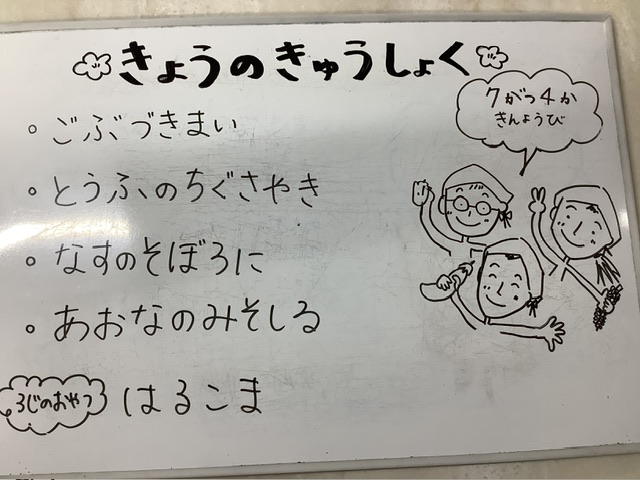 きょうのきゅうしょく
7がつ4か
きんようび
ごぶづきまい
とうふのちぐさやき
なすのそぼろに
あおなのみそしる
3じのおやつ はるこま